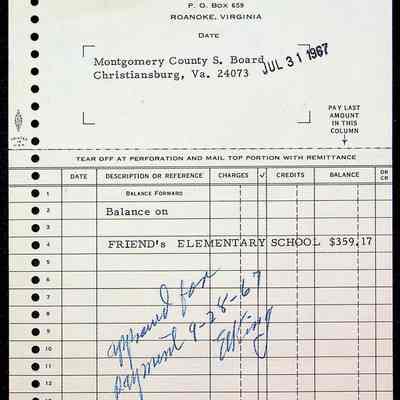 P. O. BOX 659
ROANOKE, VIRGINIA
DATE
JUL 31 1967
Montgomery County S. Board
Christiansburg, Va. 24073
PAY LAST
AMOUNT
IN THIS
COLUMN
TEAR OFF AT PERFORATION AND MAIL TOP PORTION WITH REMITTANCE
DATE DESCRIPTION OR REFERENCE CHARGES ✓ CREDITS BALANCE DR CR
1 BALANCE FORWARD
2 Balance on
3
4 FRIEND's ELEMENTARY SCHOOL $359.17
5
6
7
8
9
10
11
12
approved for
payment 9-28-67